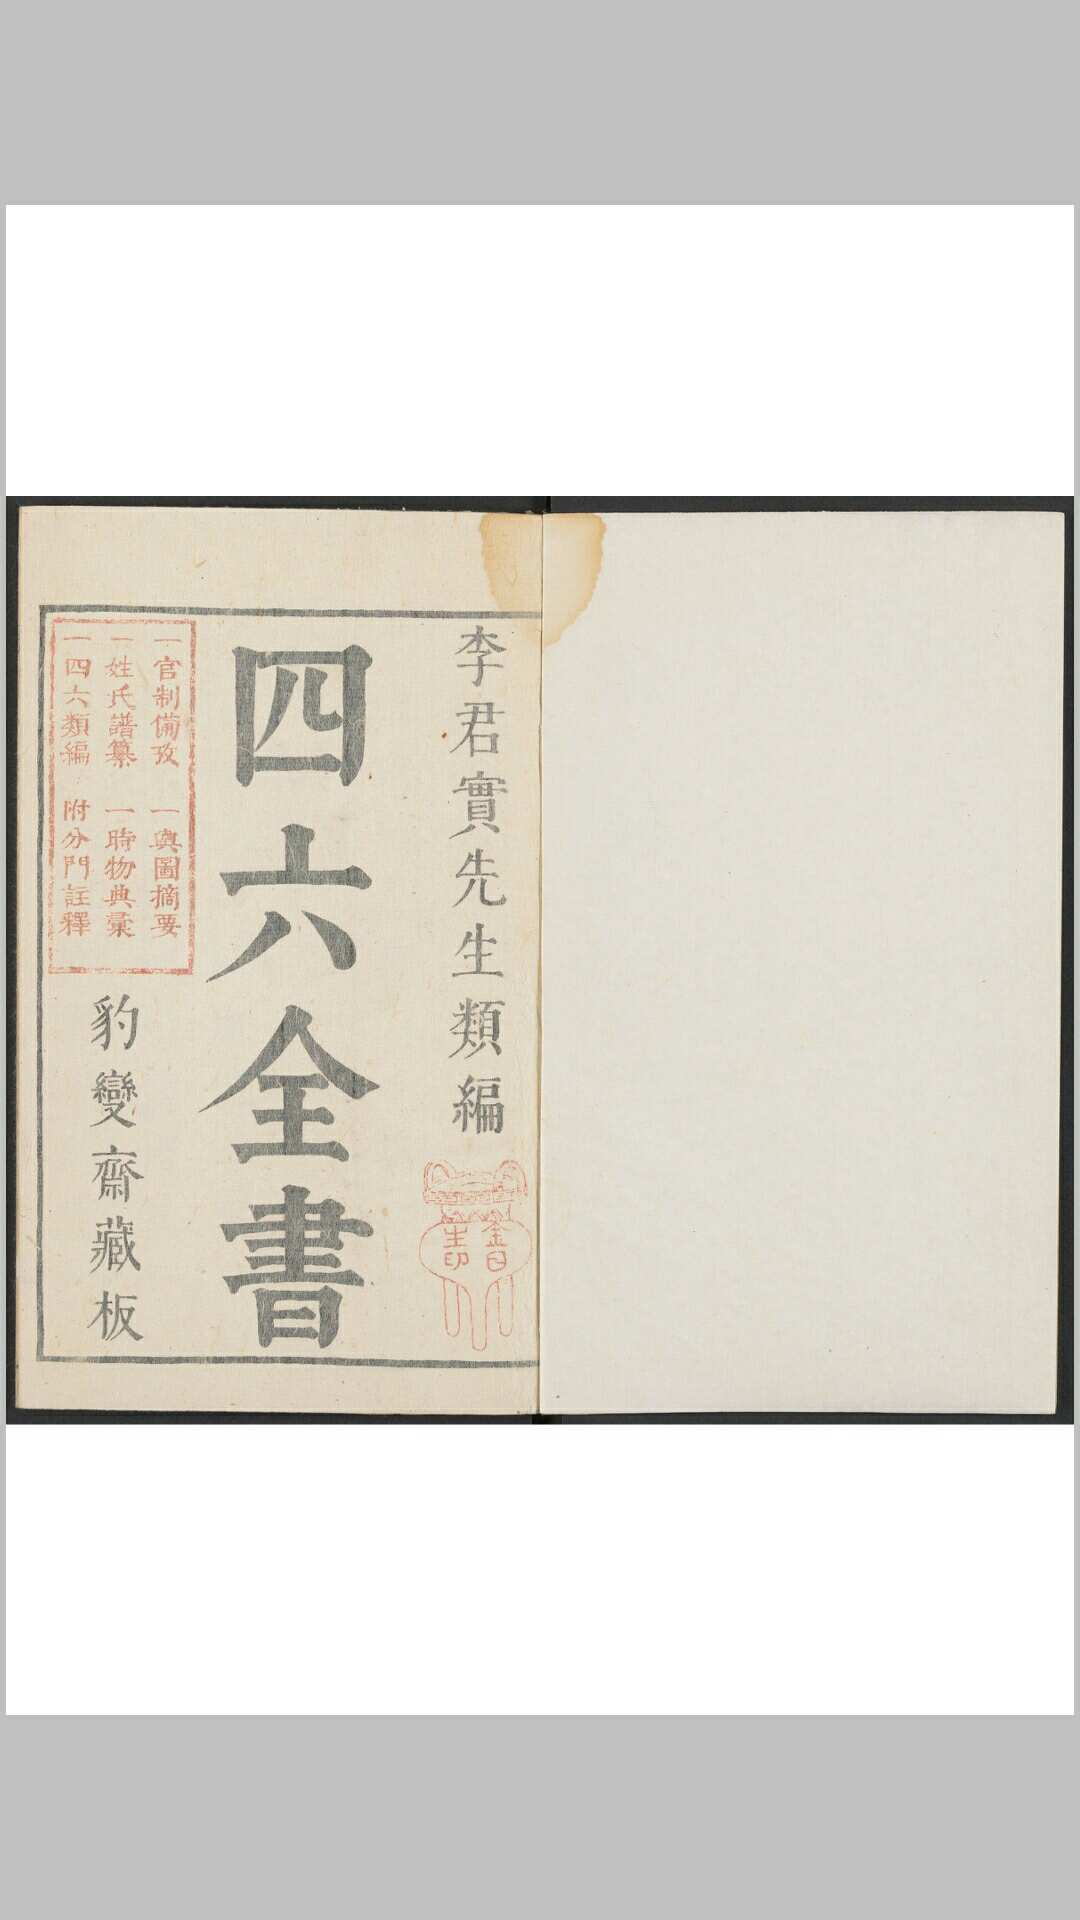 李君實先生類編
四六全書
一官制備攷 一輿圖摘要
一姓氏譜纂 一時物典彙
一四六類編 附分門註釋
豹變齋藏板